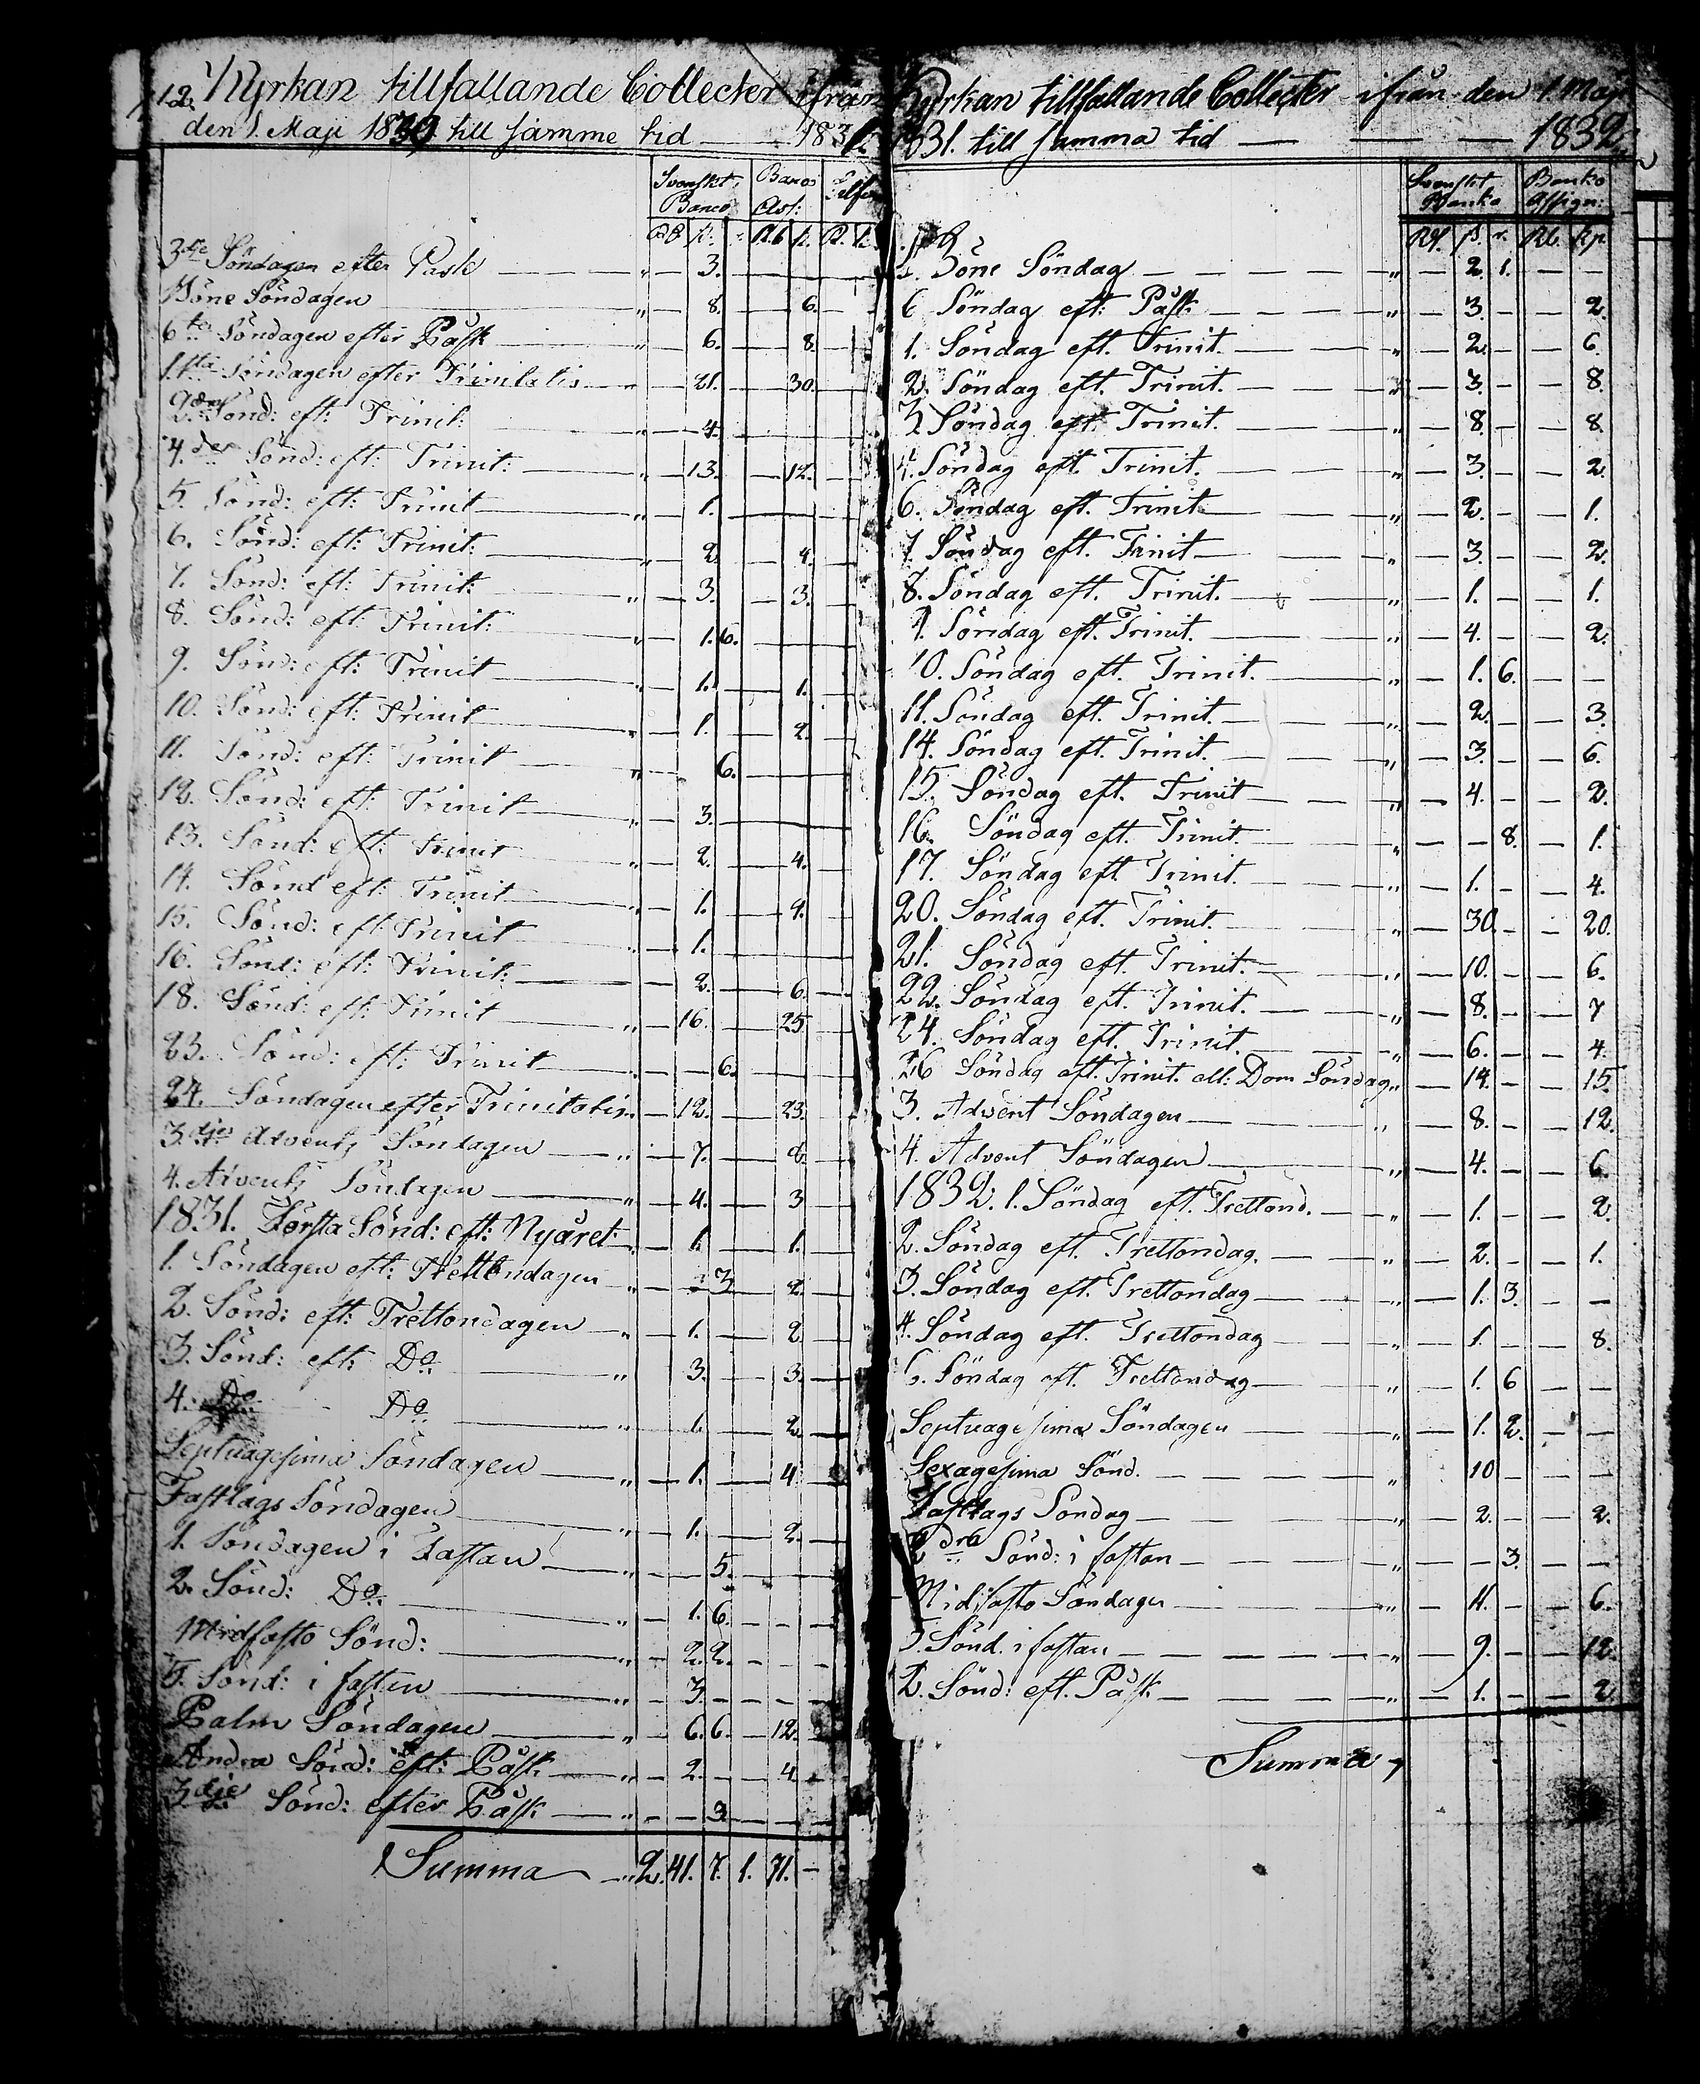 12. Kyrkan tillfallande Collecter ifrån
den 1. Maji 1830 till samme tid 1831.
Svenskt Banco Banco Ass:
3die Söndagen efter Påsk „ — 3.
Böne Söndagen „ — 8. — 6.
6te Söndagen efter Påsk „ — 6. — 8.
1sta Söndagen efter Trinitatis „ — 21. — 30.
2dra Sönd: eft: Trinit: „ — 4.
4.de Sönd: eft: Trinit: „ — 13. — 12.
5. Sönd: eft: Trinit „ — 1.
6. Sönd: eft: Trinit: „ — 2. — 4.
7. Sönd: eft: Trinit: „ — 3. — 3.
8. Sönd: eft: Trinit: „ — 1. 6.
9. Sönd: eft: Trinit „ — 1. — 1.
10. Sönd: eft: Trinit „ — 1. — 2.
11. Sönd: eft: Trinit „ — 6.
12. Sönd: eft: Trinit „ — 3.
13. Sönd: eft: Trinit „ — 2. — 4.
14. Sönd eft: Trinit „ — 1. — 9.
15. Sönd: eft: Trinit „ — 1.
16. Sönd: eft: Trinit: — 2. — 6.
18. Sönd: eft: Trinit „ — 16. — 25.
23. Sönd: eft: Trinit „ — 6.
24. Söndagen efter Trinitatis „ — 12. — 23.
3dje Advents Söndagen „ — 7. —
4. Advents Söndagen „ — 4. — 3
1831. Första Sönd: eft: Nyåret „ — 1. — 1.
1. Söndagen eft: Trettondagen „ — 3. — 2.
2. Sönd: eft: Trettondagen „ — 1. — 2
3. Sönd: eft: Do „ 3. — 3.
4. Do Do „ — 1. — 2
Septuagesima Söndagen „ — 1. — 4
Fastlags Söndagen „ — 1. — 2.
1. Söndagen i Fastan „ — 5.
2. Sönd: Do „ — 1. 6. — — —
Midfasto Sönd: „ — 2. 2. — — —
5. Sönd: i fasten „ — 3. — — — —
Palm Söndagen „ — 6. 6. — 12.
Andra Sönd: eft: Påsk „ — 2. — — 4
3dje Sönd: efter Påsk „ — — 3. — — —
Summa „ 2. 41. 7. 1. 71. —
Kyrkan tillfallande Collecter ifrån den 1 Maji
1831. till samma tid — — — 1832.
Svenskt Banko Banko Assign:
Böne Söndag „ — 2. 1. — —
6 Söndag eft: Påsk „ — 3. — — 2.
1. Söndag eft. Trinit. „ — 2. — — 6.
2. Söndag eft. Trinit. „ — 3. — — 8.
3. Söndag eft. Trinit. „ — 8. — — 8.
4. Söndag eft. Trinit. „ — 3. — — 2.
6. Söndag eft. Trinit. „ — 2. — — 1.
7. Söndag eft. Trinit „ — 3. — — 2.
8. Söndag eft. Trinit. „ — 1. — — 1.
9. Söndag eft. Trinit. „ — 4. — — 2.
10. Söndag eft. Trinit. „ — 1. 6. — —
11. Söndag eft. Trinit. „ — 2. — — 3.
14. Söndag eft. Trinit. „ — 3. — — 6.
15. Söndag eft. Trinit „ — 4. — — 2.
16. Söndag eft. Trinit. „ — — 8. — 1.
17. Söndag eft. Trinit. „ — 1. — — 4.
20. Söndag eft. Trinit. „ — 30. — — 20.
21. Söndag eft. Trinit. „ — 10. — — 6.
22. Söndag eft. Trinit. „ — 8. — — 7
24. Söndag eft. Trinit. „ — 6. — — 4.
26 Söndag eft. Trinit. ell: Dom Söndag „ — 14. — — 15.
3. Advent Söndagen „ — 8. — — 12.
4. Advent Söndagen „ — 4. — — 6.
1832. 1. Söndag eft. Trettond. „ — 1. — — 2.
2. Söndag eft. Trettondag. „ — 2. — — 1.
3. Söndag eft. Trettondag „ — 1. 3. — —
4. Söndag eft. Trettondag „ — 1. — — 8.
Söndag eft. Trettondag „ — 1. 6 — —
Septuagesima Söndagen „ — 1. 2. — —
Sexagesima Sönd. „ 10 — — —
Fastlags Söndag „ — 2. — — 2.
2dra Sönd: i fastan „ — — 3. — —
Midfasto Söndagen „ — 4. — — 6.
5. Sönd. i fastan „ — 9. — — 12.
2. Sönd: eft. Påsk „ — 1. — — 2
Summa